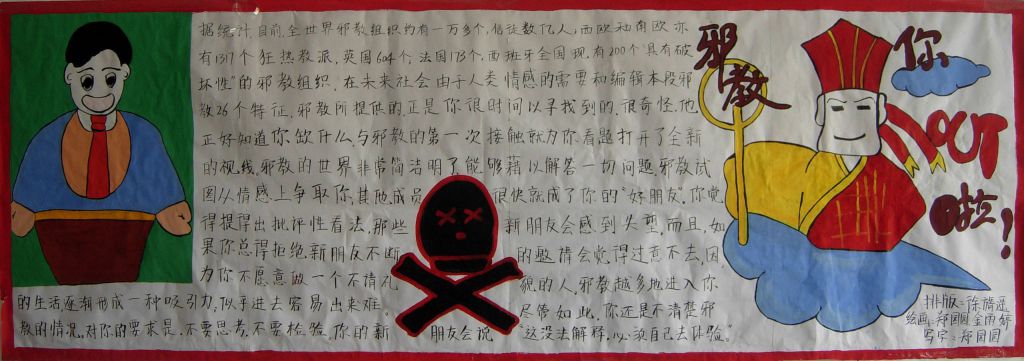 据统计,目前,全世界邪教组织约有一万多个,信徒数亿人,西欧和南欧亦
有1317个狂热教派,英国604个;法国173个,西班牙全国现有200个"具有破
坏性"的邪教组织.在未来社会由于人类情感的需要和编辑本段邪
教26个特征.邪教所提供的,正是你很时间以寻找到的.很奇怪,他
正好知道你缺什么,与邪教的第一次接触就为你看题打开了全新
的视线.邪教的世界非常简洁明了,能够藉以解答一切问题.邪教试
图从情感上争取你,其他成员很快就成了你的"好朋友".你觉
得提得出批评性看法,那些新朋友会感到失望,而且,如
果你总得拒绝新朋友不断的邀请会觉得过意不去,因
为你不愿意做一个不情礼貌的人,邪教越多地进入你
的生活逐渐形成一种吸引力,似乎进去容易出来难.尽管如此,你还是不清楚邪
教的情况.对你的要求是:不要思考,不要检验.你的新朋友会说"这没法解释,必须自己去体验".
邪教
你
OUT
啦!
排版:徐腾遥
绘画:郑园园 金雨婷
写字:郑园园